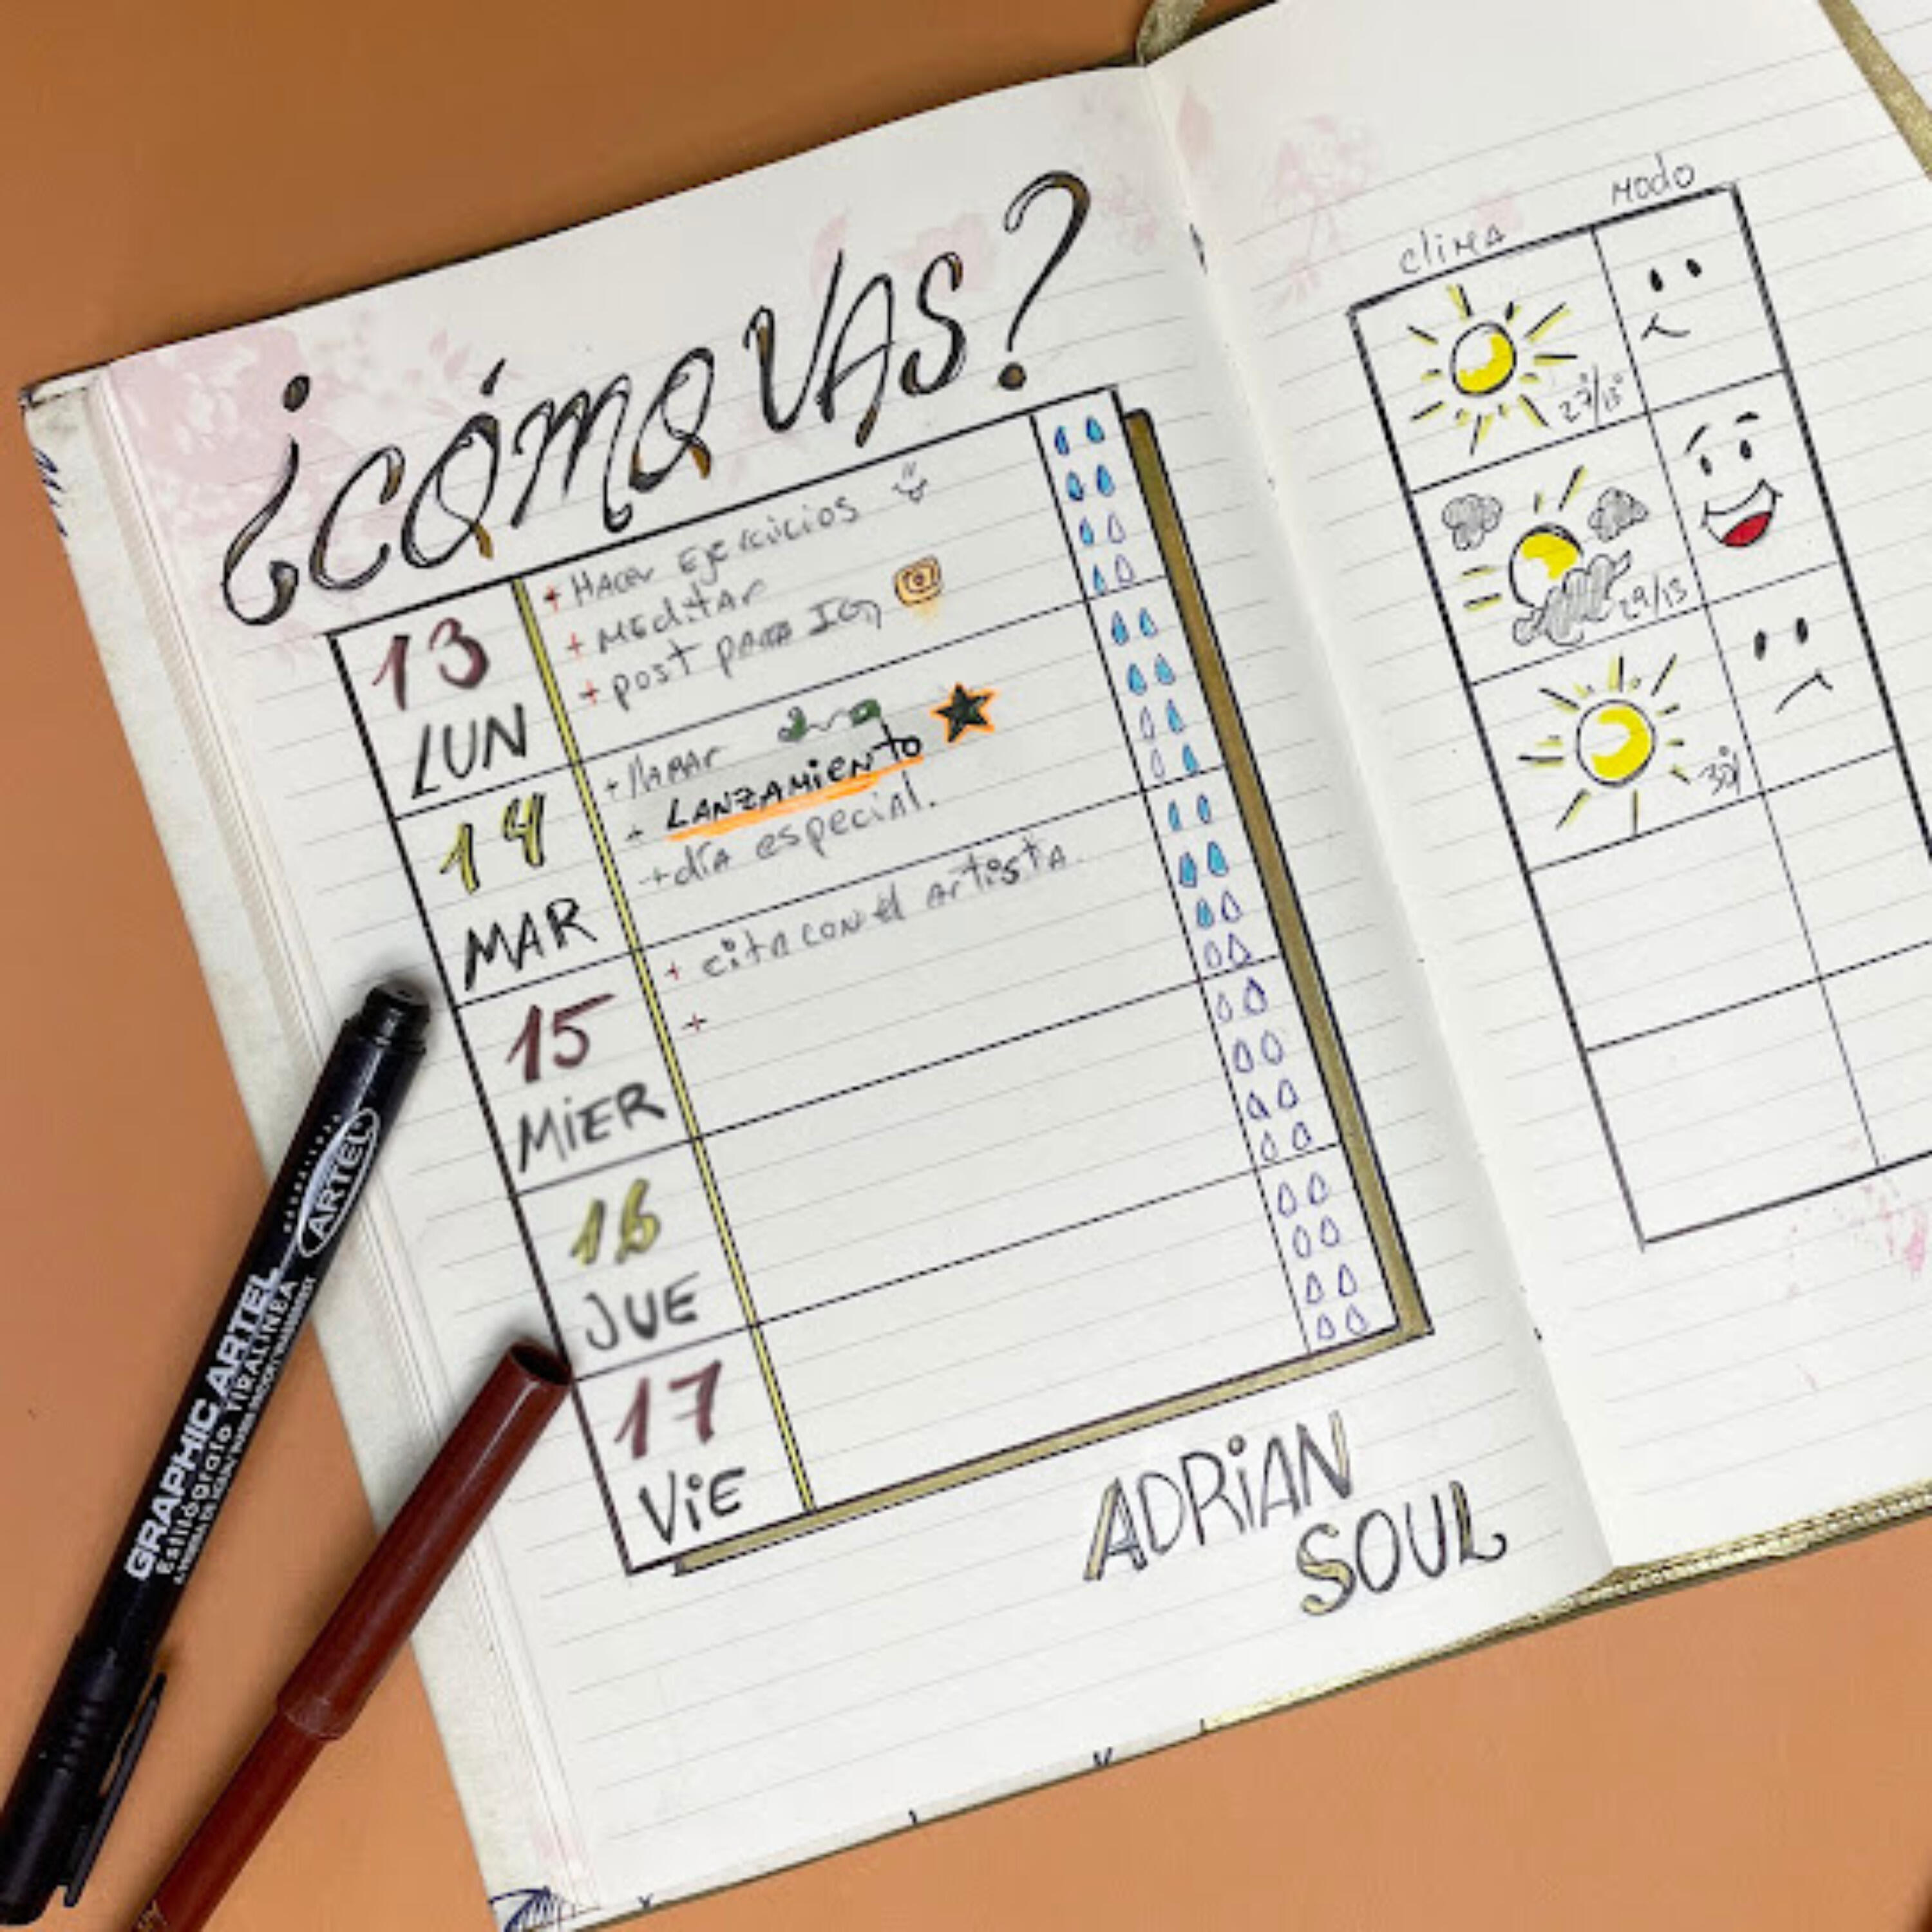 ¿CÓMO VAS?
13
LUN
+ HACER EJERCICIOS
+ MEDITAR
+ POST PARA IG
14
MAR
+ LANZAMIENTO
+ día especial.
15
MIER
+ cita con el artista
+
16
JUE
17
VIE
ADRIAN
SOUL
clima
Modo
27°/13°
29/13
30°
ARTEL
GRAPHIC ARTEL
Estilógrafo TIRALINEA